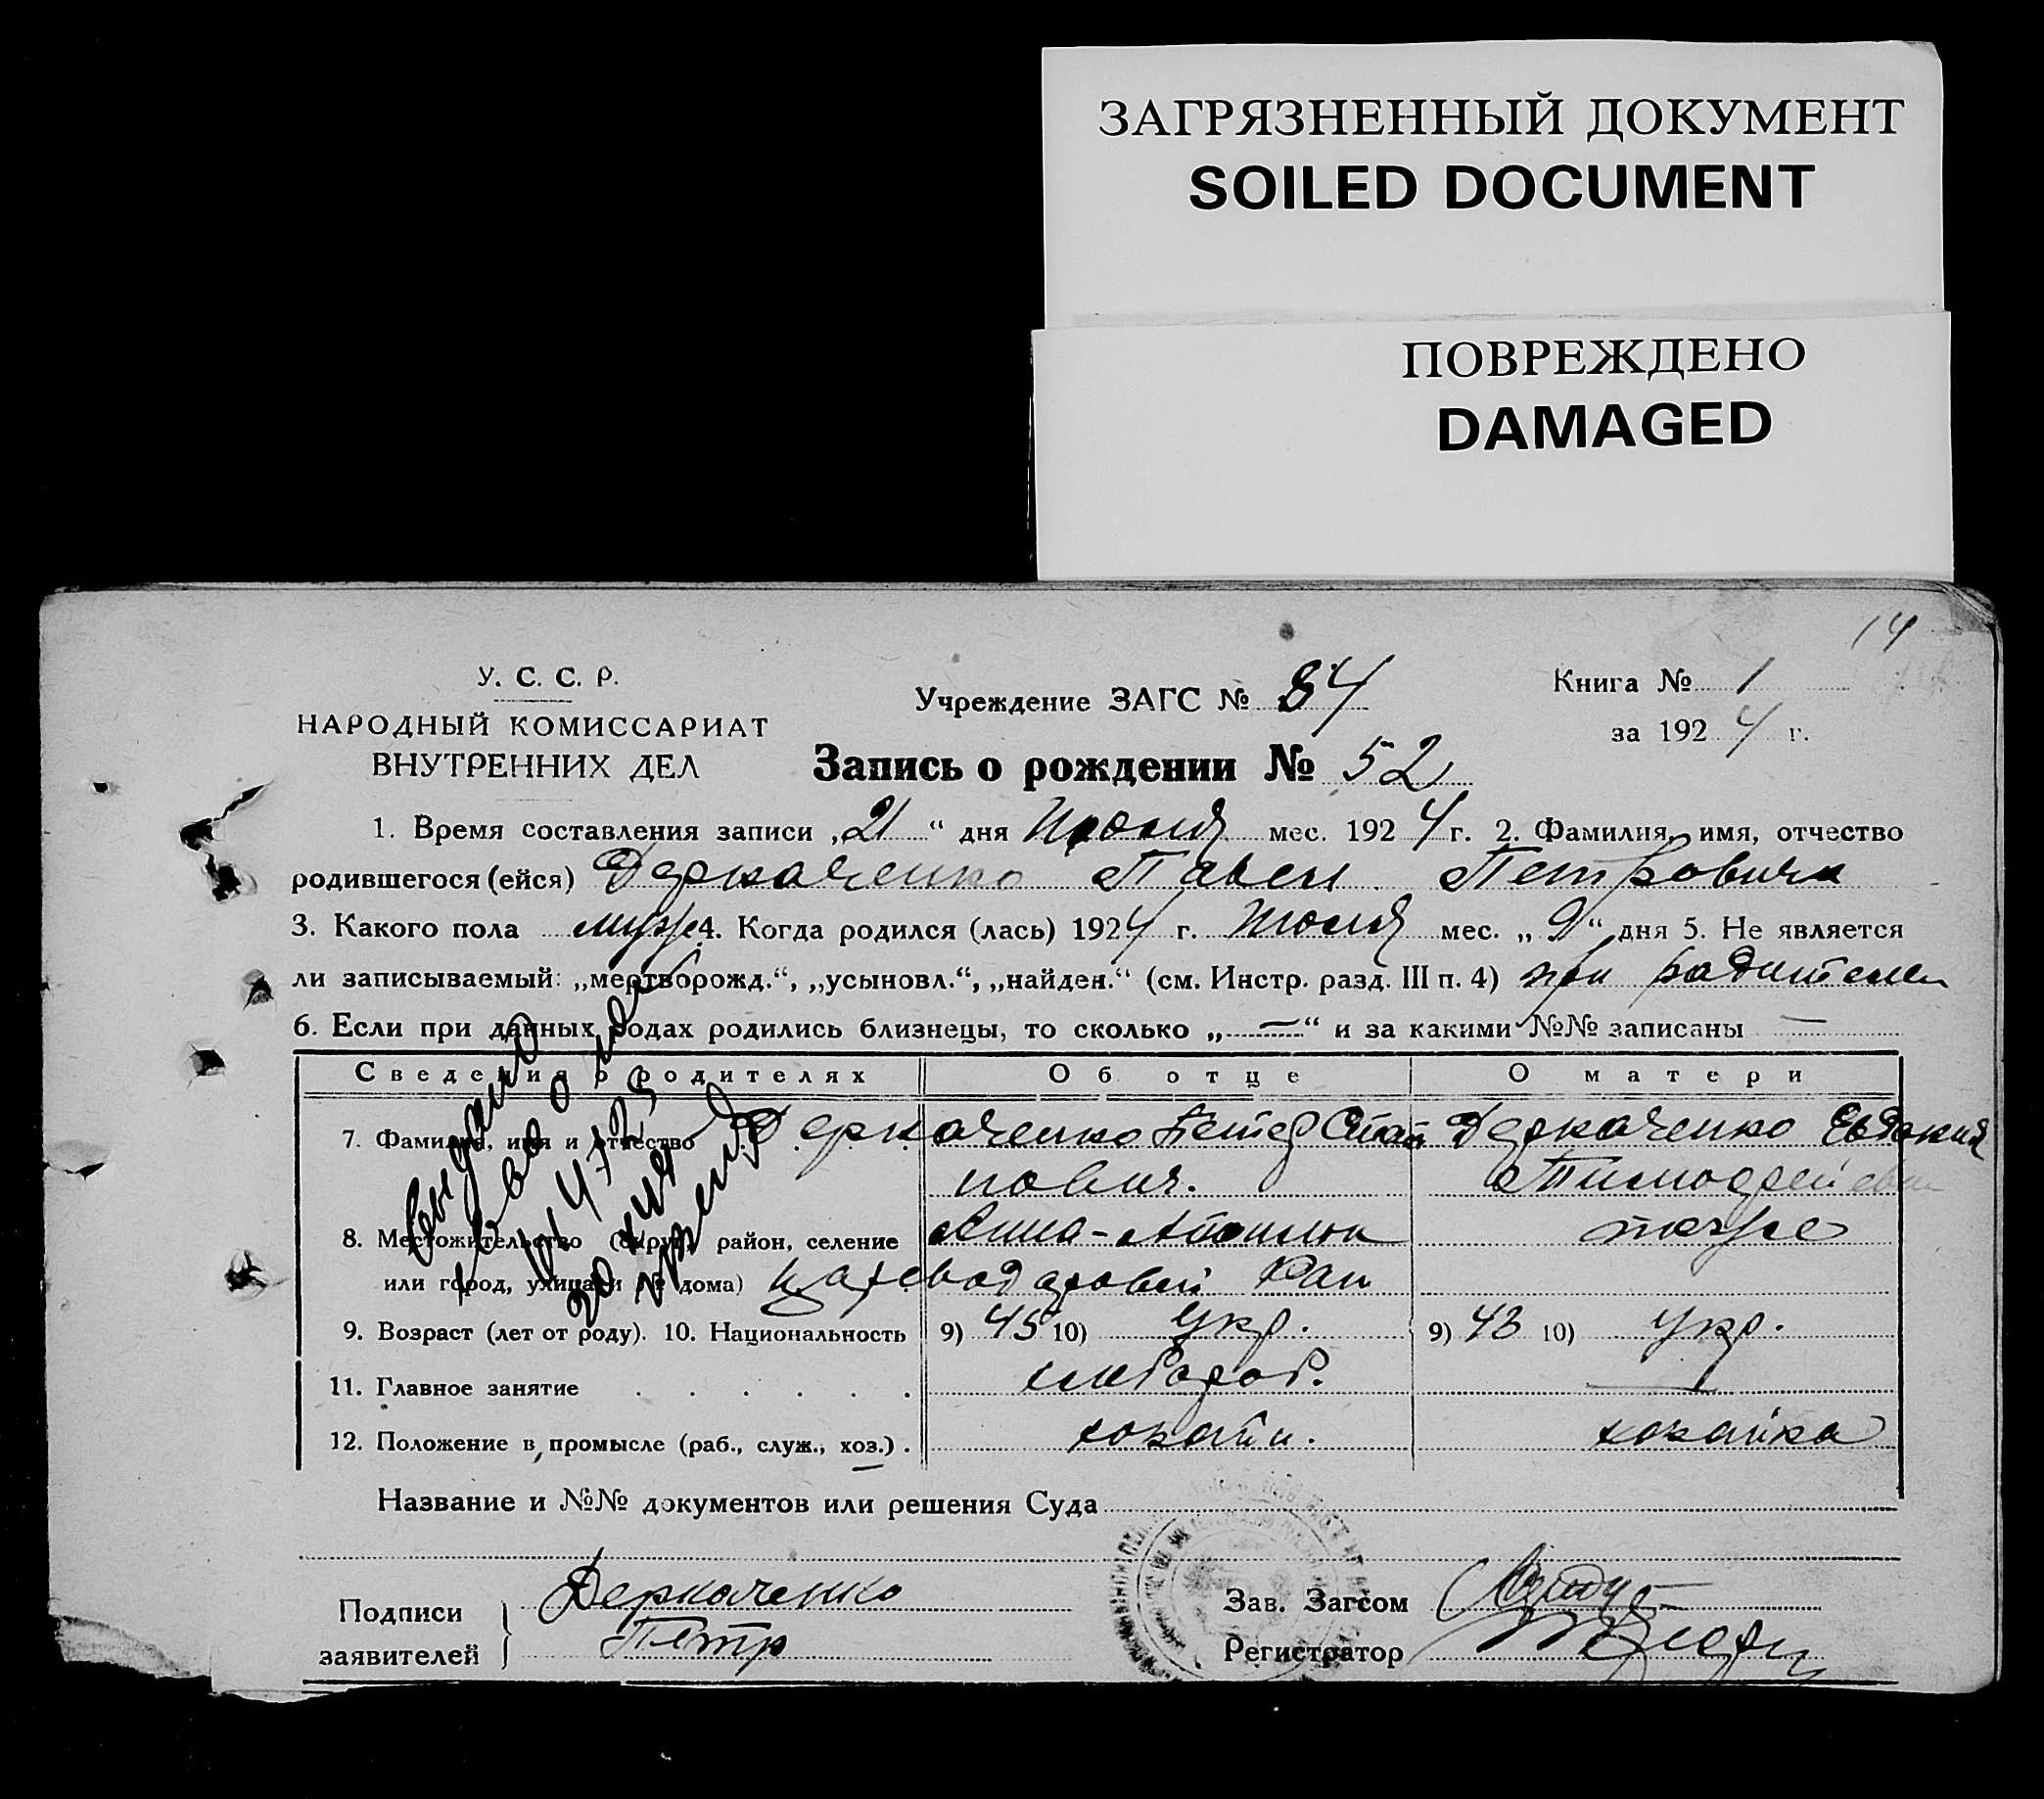 ЗАГРЯЗНЕННЫЙ ДОКУМЕНТ
SOILED DOCUMENT
ПОВРЕЖДЕНО
DAMAGED
14
У. С. С. Р.
НАРОДНЫЙ КОМИССАРИАТ
ВНУТРЕННИХ ДЕЛ
Учреждение ЗАГС № 84
Книга № 1
за 1924 г.
Запись о рождении № 52
1. Время составления записи „21“ дня Июля мес. 1924 г. 2. Фамилия, имя, отчество
родившегося (ейся) Деркаченко Павел Петрович
3. Какого пола муж. 4. Когда родился (лась) 1924 г. Июля мес. „9“ дня 5. Не является
ли записываемый: „мертворожд.“, „усыновл.“, „найден.“ (см. Инстр. разд. III п. 4) при
6. Если при данных родах родились близнецы, то сколько „—“ и за какими №№ записаны —
Сведения о родителях Об отце О матери
7. Фамилия, имя и отчество Деркаченко Петер Деркаченко Евдокия
пович.
8. Местожительство (округ, район, селение тоже
или город, улица и № дома)
9. Возраст (лет от роду). 10. Национальность 9) 45 10) Укр. 9) 43 10) Укр.
11. Главное занятие
12. Положение в промысле (раб., служ., хоз.) . хозаин. хозаика
Название и №№ документов или решения Суда
Выдано
Подписи заявителей Деркаченко
Петр
Зав. Загсом
Регистратор